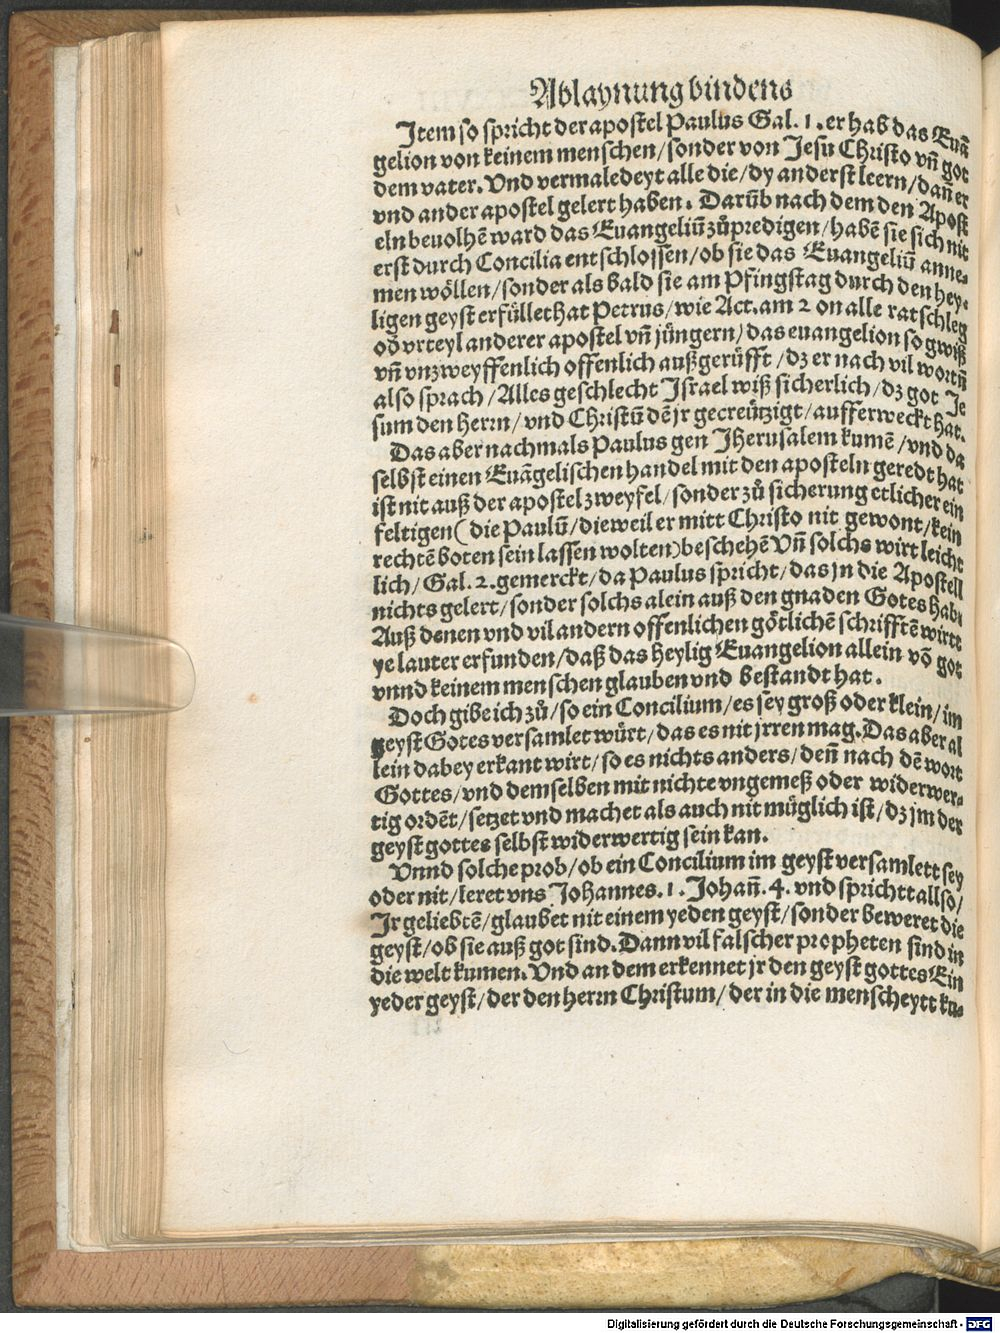 Ablaynung bindens
Item so spricht der apostel Paulus Gal. 1. er hab das Euā
gelion von keinem menschen/ sonder von Jesu Christo vn̄ got
dem vater. Vnd vermaledeyt alle die/ dy anderst leern/ dañ er
vnd ander apostel gelert haben. Darūb nach dem den Apost
eln beuolhē ward das Euangeliū zů predigen/ habē sie sich nit
erst durch Concilia entschlossen/ ob sie das Euangeliū anne-
men wöllen/ sonder als bald sie am Pfingstag durch den hey-
ligen geyst erfüllet hat Petrus/ wie Act. am 2 on alle ratschleg
od̄ vrteyl anderer apostel vn̄ jüngern/ das euangelion so gwiß
vn̄ vnzweyffenlich offenlich außgerüfft/ dz er nach vil wortn̄
also sprach/ Alles geschlecht Israel wiß sicherlich/ dz got Je
sum den Herrn/ vnd Christū dē jr gecreützigt/ aufferweckt hat.
Das aber nachmals Paulus gen Jherusalem kumē/ vnd da
selbst einen Euāgelischen handel mit den aposteln geredt hat
ist nit auß der apostel zweyfel/ sonder zů sicherung etlicher ein
feltigen (die Paulū/ dieweil er mitt Christo nit gewont/ kein
rechtē boten sein lassen wolten) beschehē Vn̄ solchs wirt leicht
lich/ Gal. 2. gemerckt/ da Paulus spricht/ das jn die Apostell
nichts gelert/ sonder solchs alein auß den gnaden Gotes hab.
Auß denen vnd vil andern offenlichen götlichē schrifftē wirtt
ye lauter erfunden/ daß das heylig Euangelion allein vō got
vnnd keinem menschen glauben vnd bestandt hat.
Doch gibe ich zů/ so ein Concilium/ es sey groß oder klein/ im
geyst Gotes versamlet würt/ das es nit jrren mag. Das aber al
lein dabey erkant wirt/ so es nichts anders/ deñ nach dē wort
Gottes/ vnd demselben mit nichte vngemeß oder widerwer-
tig ordēt/ setzet vnd machet als auch nit müglich ist/ dz jm der
geyst gottes selbst widerwertig sein kan.
Vnnd solche prob/ ob ein Concilium im geyst versamlett sey
oder nit/ leret vns Johannes. 1. Johañ. 4. vnd sprichtt allso/
Ir geliebtē/ glaubet nit einem yeden geyst/ sonder beweret die
geyst/ ob sie auß got sind. Dann vil falscher propheten sind in
die welt kumen. Vnd an dem erkennet jr den geyst gottes Ein
yeder geyst/ der den herrn Christum/ der in die menscheytt ku-
Digitalisierung gefördert durch die Deutsche Forschungsgemeinschaft - DFG